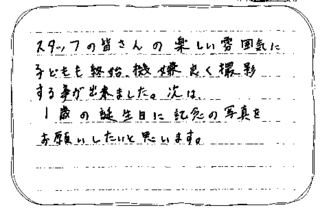 スタッフの皆さんの楽しい雰囲気に
子どもも終始、機嫌良く撮影
する事が出来ました。次は、
1歳の誕生日に記念の写真を
お願いしたいと思います。